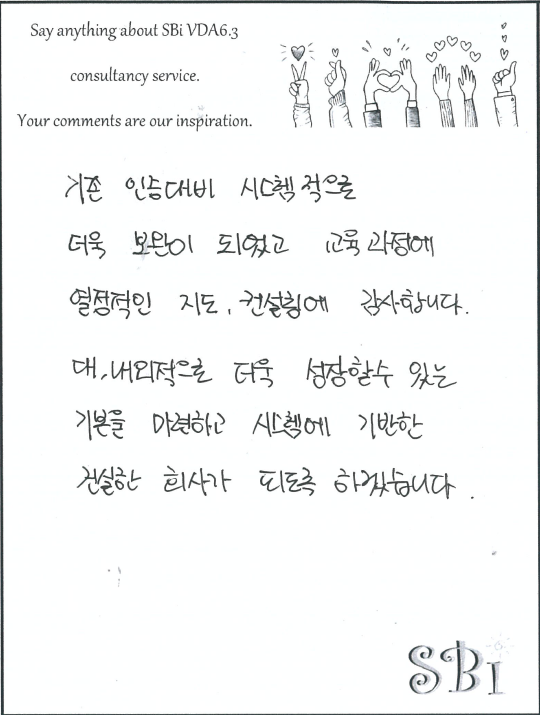 Say anything about SBi VDA6.3
consultancy service.
Your comments are our inspiration.
기존 인증대비 시스템적으로
더욱 보완이 되었고 교육과정에
열정적인 지도, 컨설팅에 감사합니다.
대,내외적으로 더욱 성장할수 있는
기본을 마련하고 시스템에 기반한
건실한 회사가 되도록 하겠습니다.
SBi